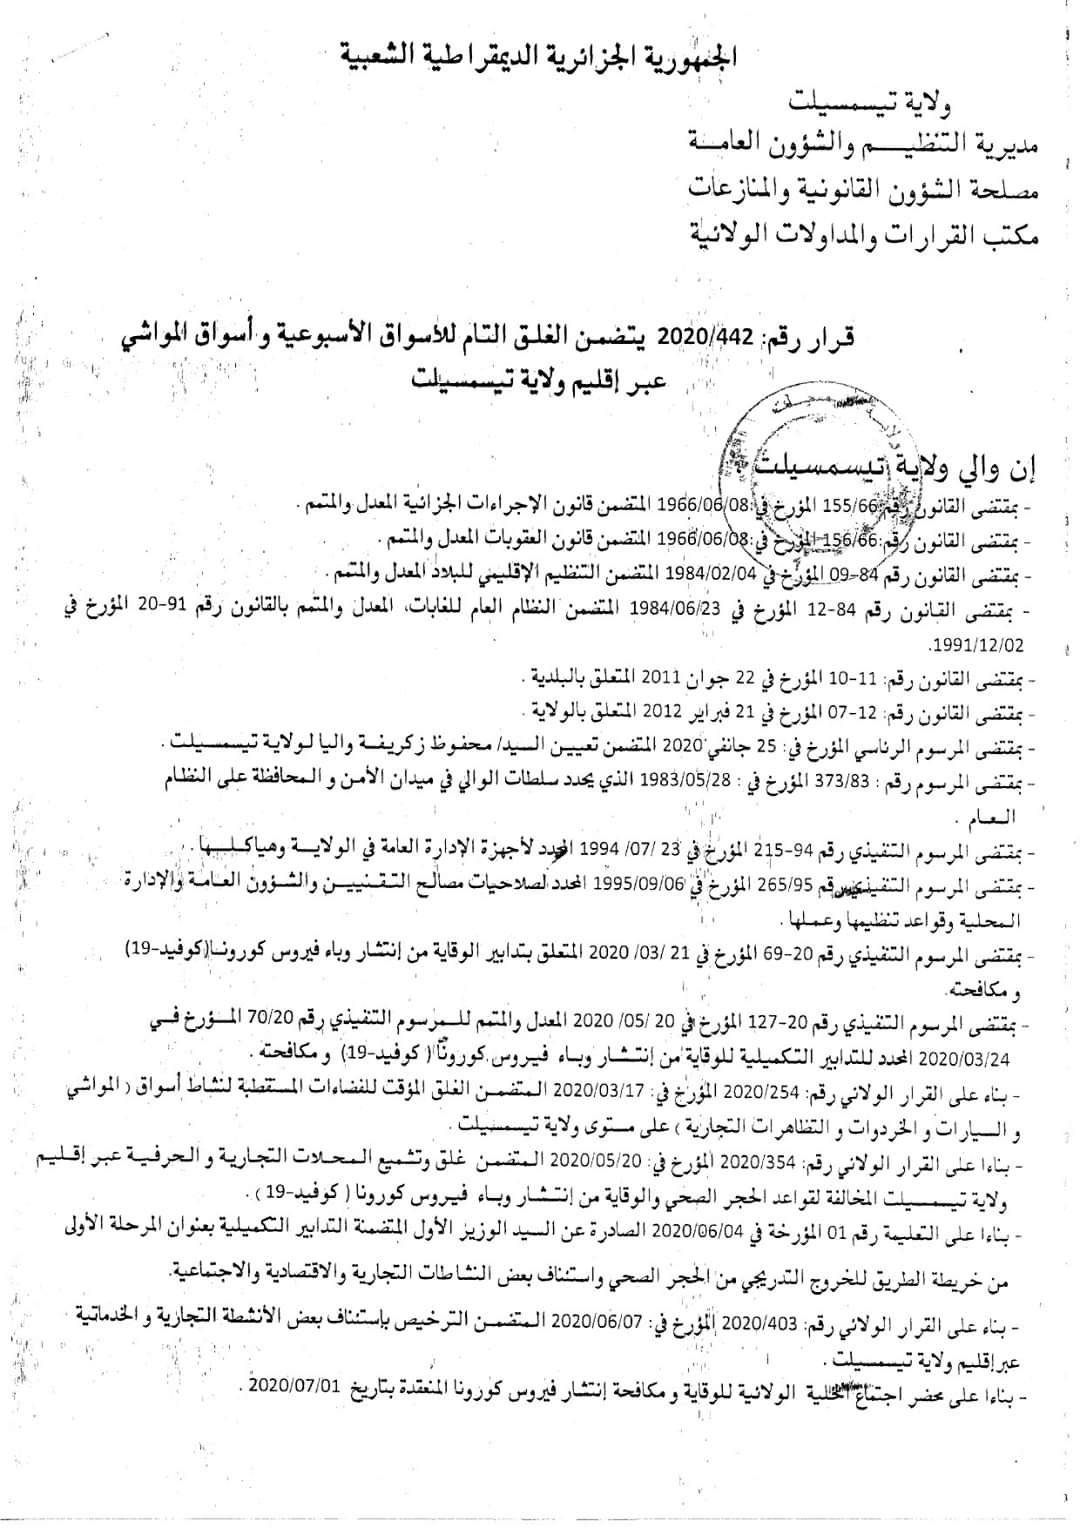 الجمهورية الجزائرية الديمقراطية الشعبية
ولاية تيسمسيلت
مديرية التنظيم والشؤون العامة
مصلحة الشؤون القانونية والمنازعات
مكتب القرارات والمداولات الولائية
قرار رقم: 2020/442 يتضمن الغلق التام للأسواق الأسبوعية و أسواق المواشي
عبر إقليم ولاية تيسمسيلت
إن والي ولاية تيسمسيلت :
- بمقتضى القانون رقم:155/66 المؤرخ في:1966/06/08 المتضمن قانون الإجراءات الجزائية المعدل والمتمم .
- بمقتضى القانون رقم:156/66 المؤرخ في:1966/06/08 المتضمن قانون العقوبات المعدل والمتمم .
- بمقتضى القانون رقم 84-09 المؤرخ في 1984/02/04 المتضمن التنظيم الإقليمي للبلاد المعدل والمتمم .
- بمقتضى القانون رقم 84-12 المؤرخ في 1984/06/23 المتضمن النظام العام للغابات، المعدل والمتمم بالقانون رقم 91-20 المؤرخ في
1991/12/02.
- بمقتضى القانون رقم: 11-10 المؤرخ في 22 جوان 2011 المتعلق بالبلدية .
- بمقتضى القانون رقم: 12-07 المؤرخ في 21 فبراير 2012 المتعلق بالولاية .
- بمقتضى المرسوم الرئاسي المؤرخ في: 25 جانفي 2020 المتضمن تعيين السيد/ محفوظ زكريفة واليا لولاية تيسمسيلت .
- بمقتضى المرسوم رقم : 373/83 المؤرخ في : 1983/05/28 الذي يحدد سلطات الوالي في ميدان الأمن و المحافظة على النظام
العام .
- بمقتضى المرسوم التنفيذي رقم 94-215 المؤرخ في 23 /07/ 1994 المحدد لأجهزة الإدارة العامة في الولاية وهياكلها .
- بمقتضى المرسوم التنفيذي رقم 265/95 المؤرخ في 1995/09/06 المحدد لصلاحيات مصالح التقنيين والشؤون العامة والإدارة
المحلية وقواعد تنظيمها وعملها .
- بمقتضى المرسوم التنفيذي رقم 20-69 المؤرخ في 21 /03/ 2020 المتعلق بتدابير الوقاية من إنتشار وباء فيروس كورونا(كوفيد-19)
و مكافحته.
- بمقتضى المرسوم التنفيذي رقم 20-127 المؤرخ في 20 /05/ 2020 المعدل والمتمم للمرسوم التنفيذي رقم 70/20 المؤرخ في
2020/03/24 المحدد للتدابير التكميلية للوقاية من إنتشار وباء فيروس كورونا( كوفيد-19) و مكافحته .
- بناء على القرار الولائي رقم: 2020/254 المؤرخ في: 2020/03/17 المتضمن الغلق المؤقت للفضاءات المستقطبة لنشاط أسواق ( المواشي
و السيارات و الخردوات و التظاهرات التجارية ) على مستوى ولاية تيسمسيلت .
- بناءا على القرار الولائي رقم: 2020/354 المؤرخ في: 2020/05/20 المتضمن غلق وتشميع المحلات التجارية و الحرفية عبر إقليم
ولاية تيسمسيلت المخالفة لقواعد الحجر الصحي والوقاية من إنتشار وباء فيروس كورونا ( كوفيد-19 ) .
- بناءا على التعليمة رقم 01 المؤرخة في 2020/06/04 الصادرة عن السيد الوزير الأول المتضمنة التدابير التكميلية بعنوان المرحلة الأولى
من خريطة الطريق للخروج التدريجي من الحجر الصحي واستئناف بعض النشاطات التجارية والاقتصادية والاجتماعية.
- بناء على القرار الولائي رقم: 2020/403 المؤرخ في: 2020/06/07 المتضمن الترخيص بإستئناف بعض الأنشطة التجارية و الخدماتية
عبر إقليم ولاية تيسمسيلت .
- بناءا على محضر اجتماع الخلية الولائية للوقاية و مكافحة إنتشار فيروس كورونا المنعقدة بتاريخ 2020/07/01 .